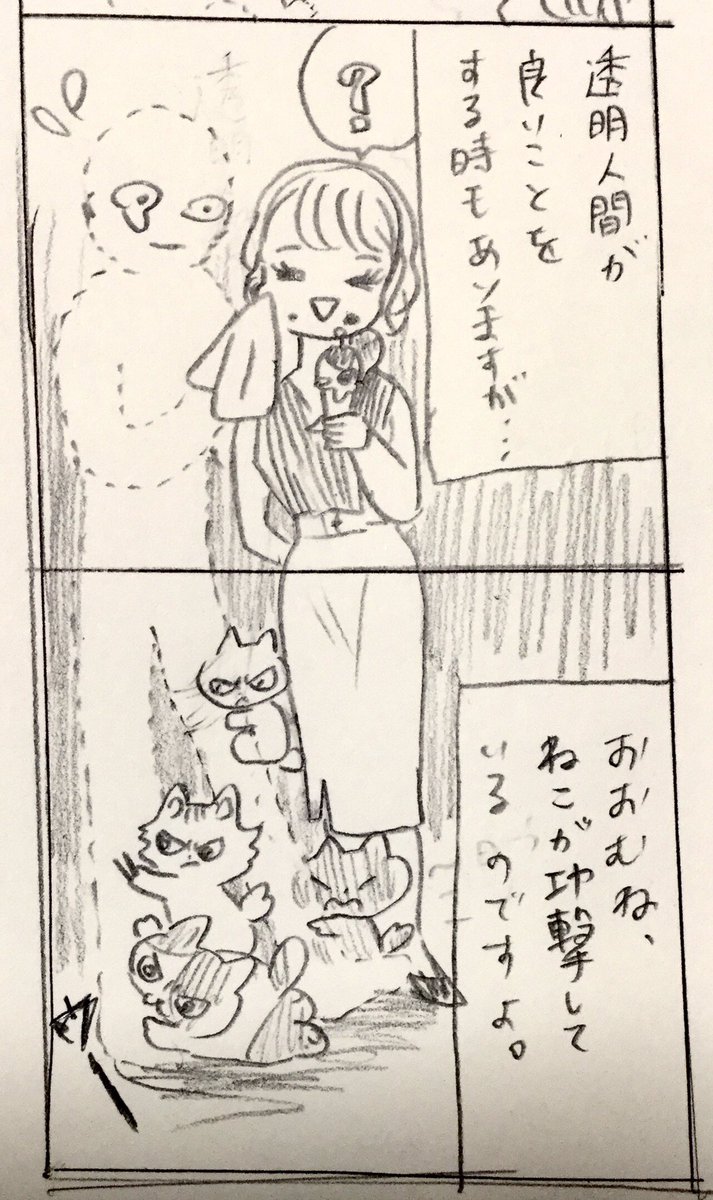 透明人間が
良いことを
する時もありますが…
?
おおむね、
ねこが攻撃して
いるのですよ。